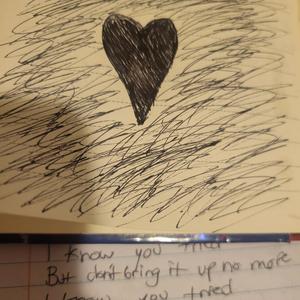 I know you
But don't bring it up no more
I know you tried